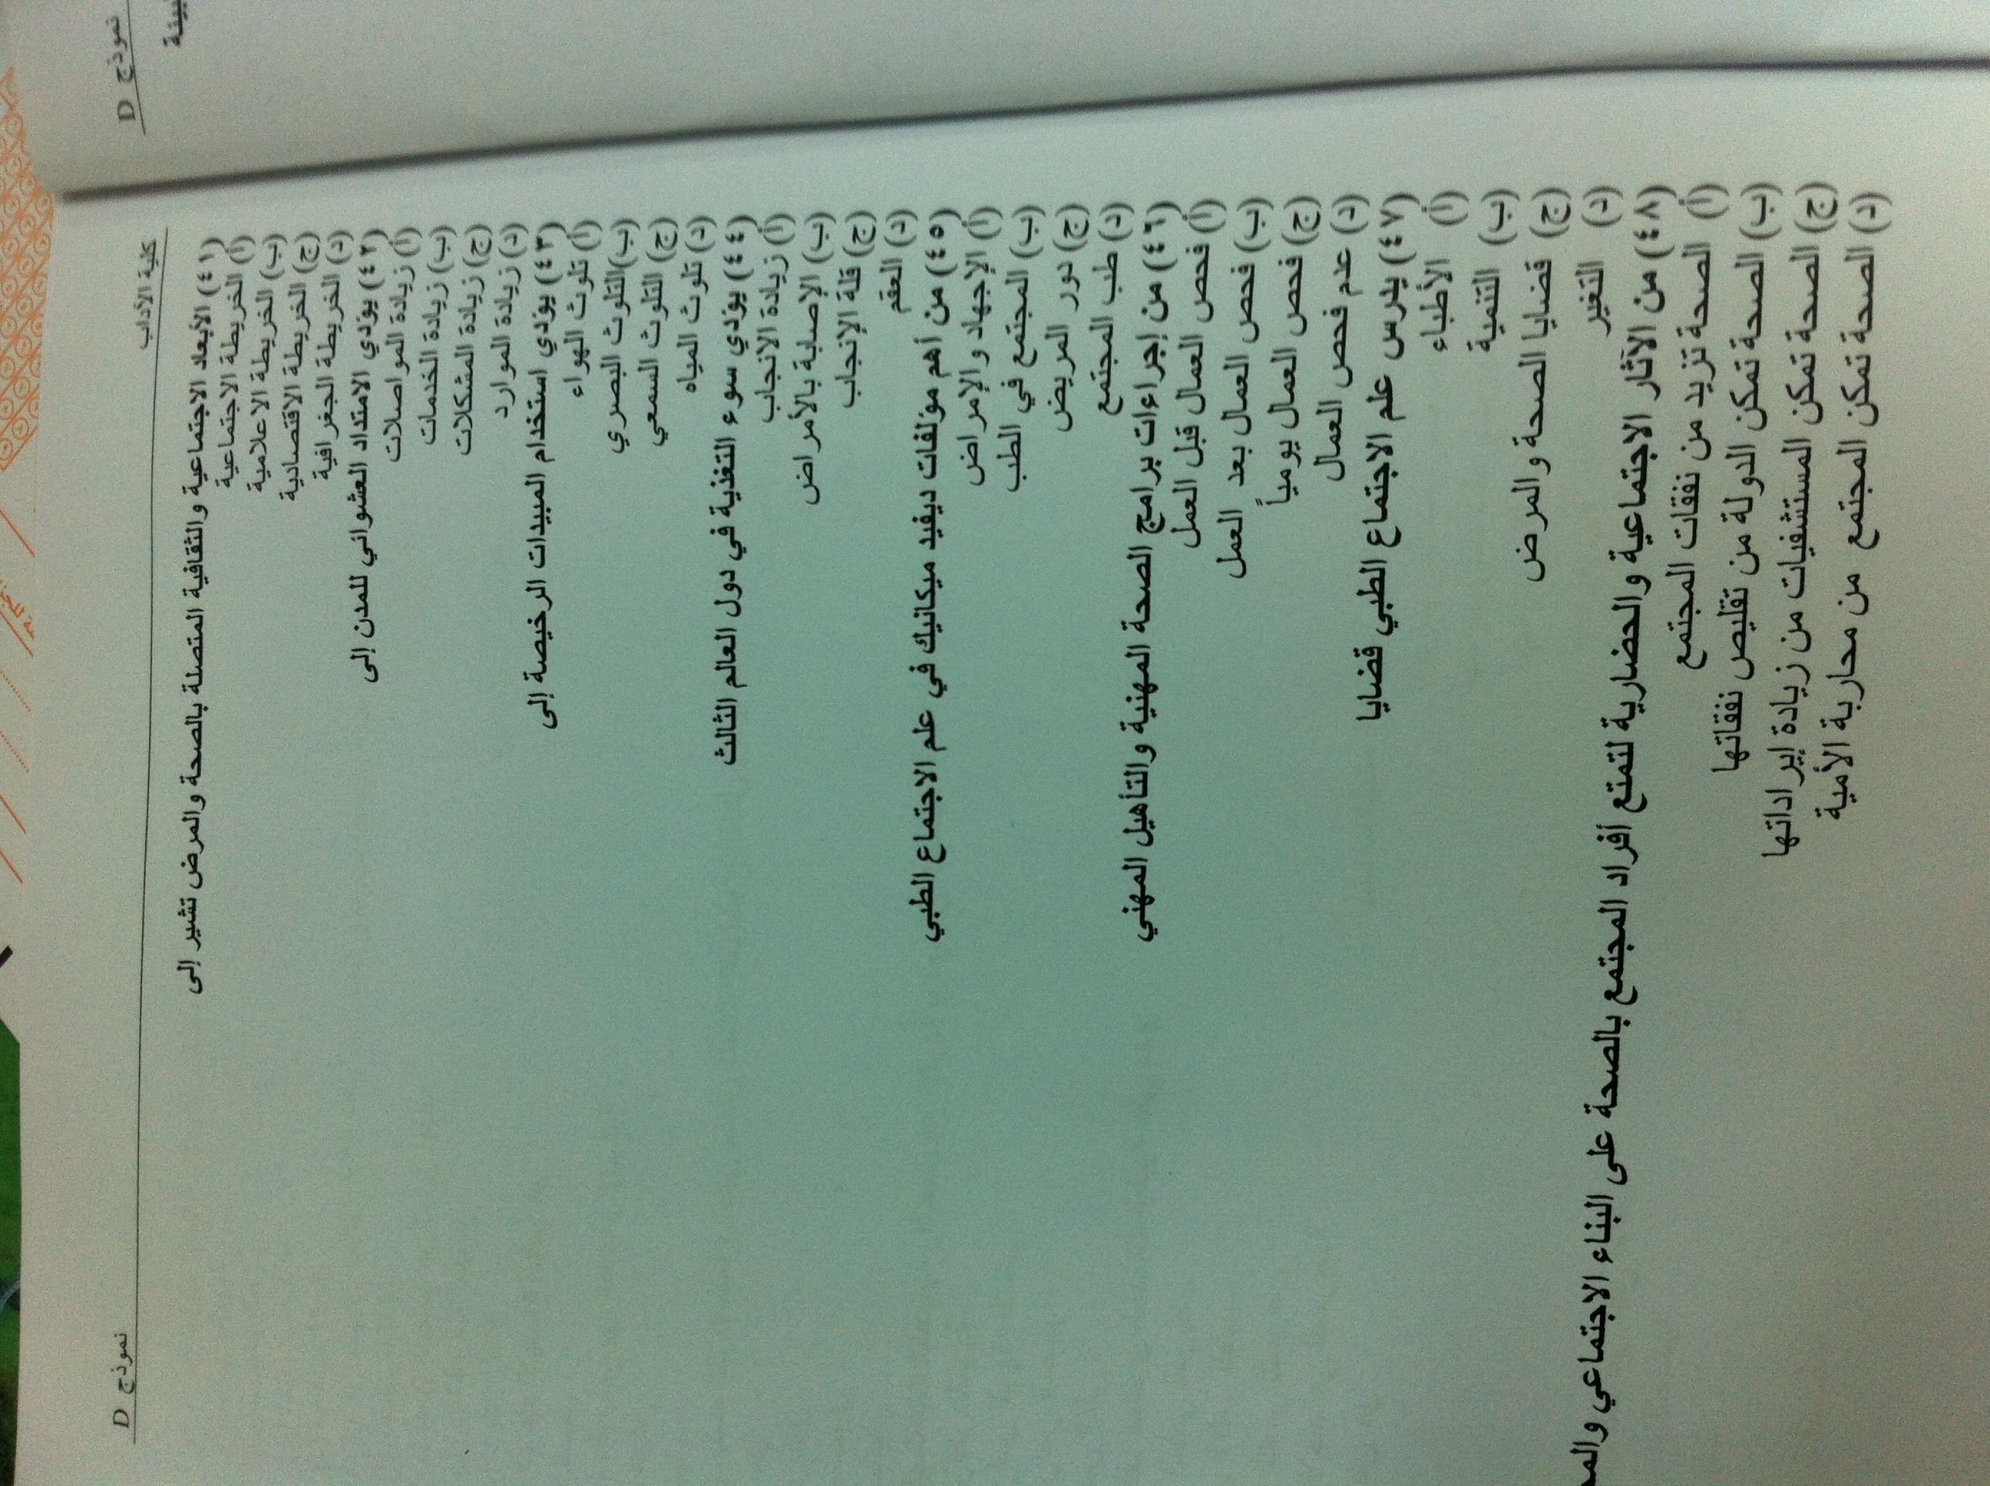 كلية الآداب
نموذج D
(٤١) الأبعاد الاجتماعية والثقافية المتصلة بالصحة والمرض تشير إلى
(أ) الخريطة الاجتماعية
(ب) الخريطة الاعلامية
(ج) الخريطة الاقتصادية
(د) الخريطة الجغرافية
(٤٢) يؤدي الامتداد العشوائي للمدن إلى
(أ) زيادة المواصلات
(ب) زيادة الخدمات
(ج) زيادة المشكلات
(د) زيادة الموارد
(٤٣) يؤدي استخدام المبيدات الرخيصة إلى
(أ) تلوث الهواء
(ب) التلوث البصري
(ج) التلوث السمعي
(د) تلوث المياه
(٤٤) يؤدي سوء التغذية في دول العالم الثالث
(أ) زيادة الانجاب
(ب) الإصابة بالأمراض
(ج) قلة الإنجاب
(د) العقم
(٤٥) من أهم مؤلفات ديفيد ميكانيك في علم الاجتماع الطبي
(أ) الإجهاد والإمراض
(ب) المجتمع في الطب
(ج) دور المريض
(د) طب المجتمع
(٤٦) من إجراءات برامج الصحة المهنية والتأهيل المهني
(أ) فحص العمال قبل العمل
(ب) فحص العمال بعد العمل
(ج) فحص العمال يومياً
(د) عدم فحص العمال
(٤٧) يدرس علم الاجتماع الطبي قضايا
(أ) الأطباء
(ب) التنمية
(ج) قضايا الصحة والمرض
(د) التغير
(٤٨) من الآثار الاجتماعية والحضارية لتمتع أفراد المجتمع بالصحة على البناء الاجتماعي
(أ) الصحة تزيد من نفقات المجتمع
(ب) الصحة تمكن الدولة من تقليص نفقاتها
(ج) الصحة تمكن المستشفيات من زيادة إيراداتها
(د) الصحة تمكن المجتمع من محاربة الأمية
نموذج D